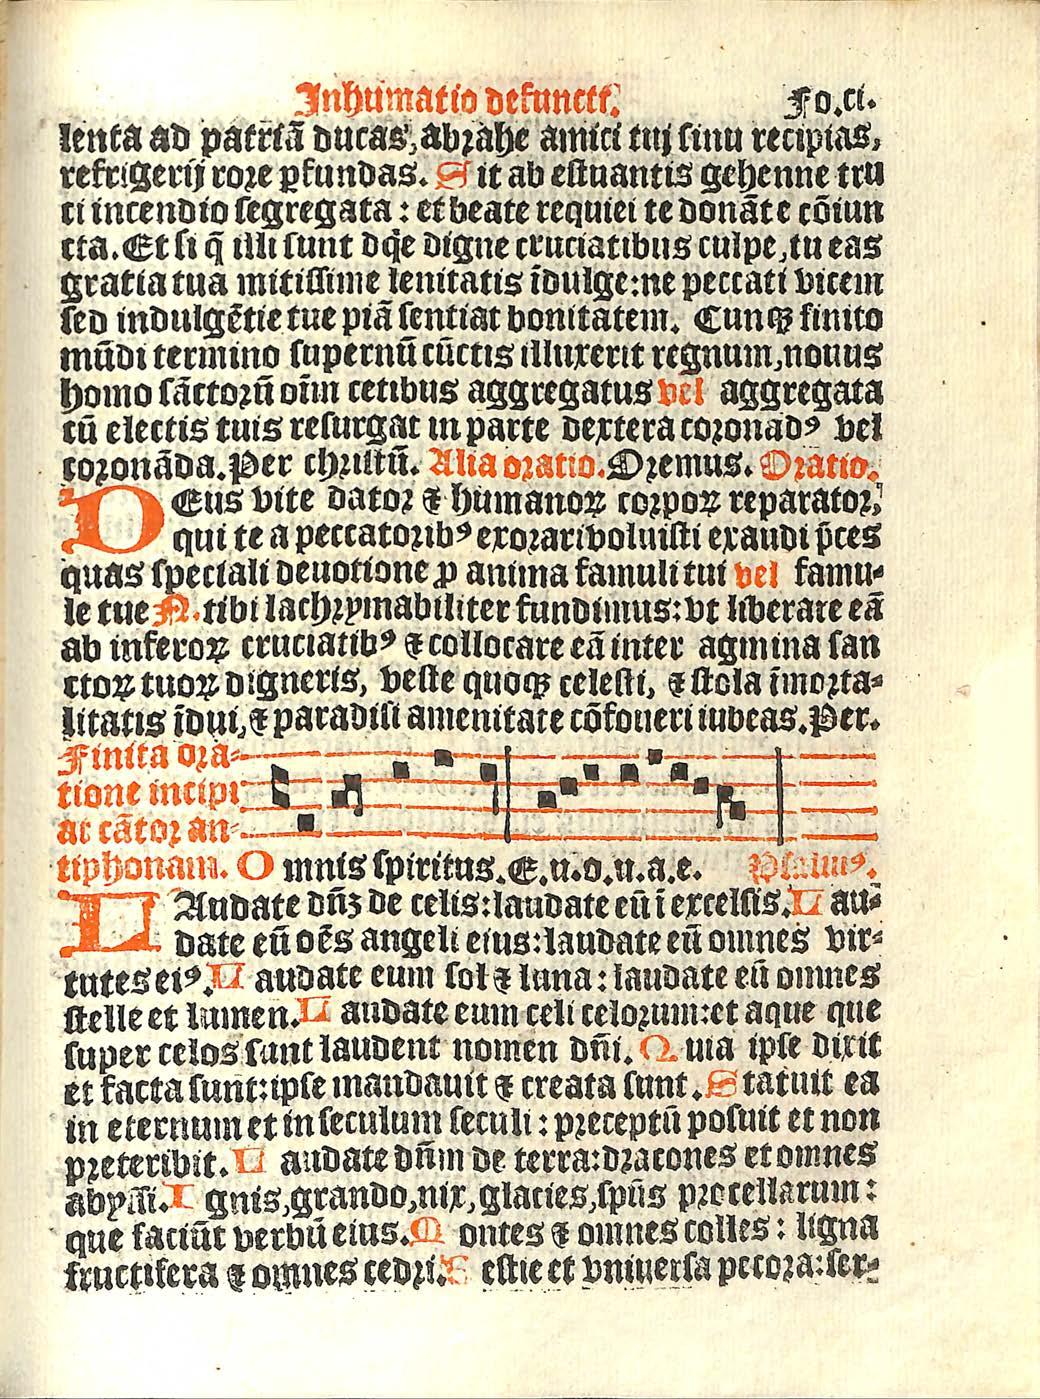 Inhumatio defuncti. Fo.ci.
lenta ad patriā ducas, abrahe amici tuj sinu recipias,
refrigerij rore ꝓfundas. Sit ab estuantis gehenne tru
ci incendio segregata : et beate requiei te donāte cōiun
cta. Et si q̄ illi sunt dq̄e digne cruciatibus culpe, tu eas
gratia tua mitissime lenitatis īdulge:ne peccati vicem
sed indulgētie tue piā sentiat bonitatem. Cunqꝫ finito
mūdi termino supernū cūctis illuxerit regnum,nouus
homo sāctorū oīm cetibus aggregatus vel aggregata
cū electis tuis resurgat in parte dextera coronadꝰ vel
coronāda. Per christū. Alia oratio. Oremus. Oratio.
DEus vite dator ⁊ humanoꝝ corpoꝝ reparator,
qui te a peccatoribꝰ exorari voluisti exaudi p̄ces
quas speciali deuotione ꝓ anima famuli tui vel famu-
le tue N. tibi lachrymabiliter fundimus: vt liberare eā
ab inferoꝝ cruciatibꝰ ⁊ collocare eā inter agmina san
ctoꝝ tuoꝝ digneris, veste quoqꝫ celesti, ⁊ stola īmorta-
litatis īdui, ⁊ paradisi amenitate cōfoueri iubeas. Per.
Finita ora-
tione incipi
at cātor an-
tiphonam. Omnis spiritus. E.u.o.u.a.e. Psalmꝰ.
LAudate dn̄ꝫ de celis:laudate eū ī excelsis. Lau-
date eū oēs angeli eius:laudate eū omnes vir-
tutes eiꝰ. Laudate eum sol ⁊ luna : laudate eū omnes
stelle et lumen. Laudate eum celi celorum:et aque que
super celos sunt laudent nomen dn̄i. Quia ipse dixit
et facta sunt:ipse mandauit ⁊ creata sunt. Statuit ea
in eternum et in seculum seculi : preceptū posuit et non
preteribit. Laudate dn̄m de terra:dracones et omnes
abyssi. Ignis,grando,nix,glacies,spūs procellarum :
que faciūt verbū eius. Montes ⁊ omnes colles : ligna
fructifera ⁊ omnes cedri. Bestie et vniuersa pecora:ser-